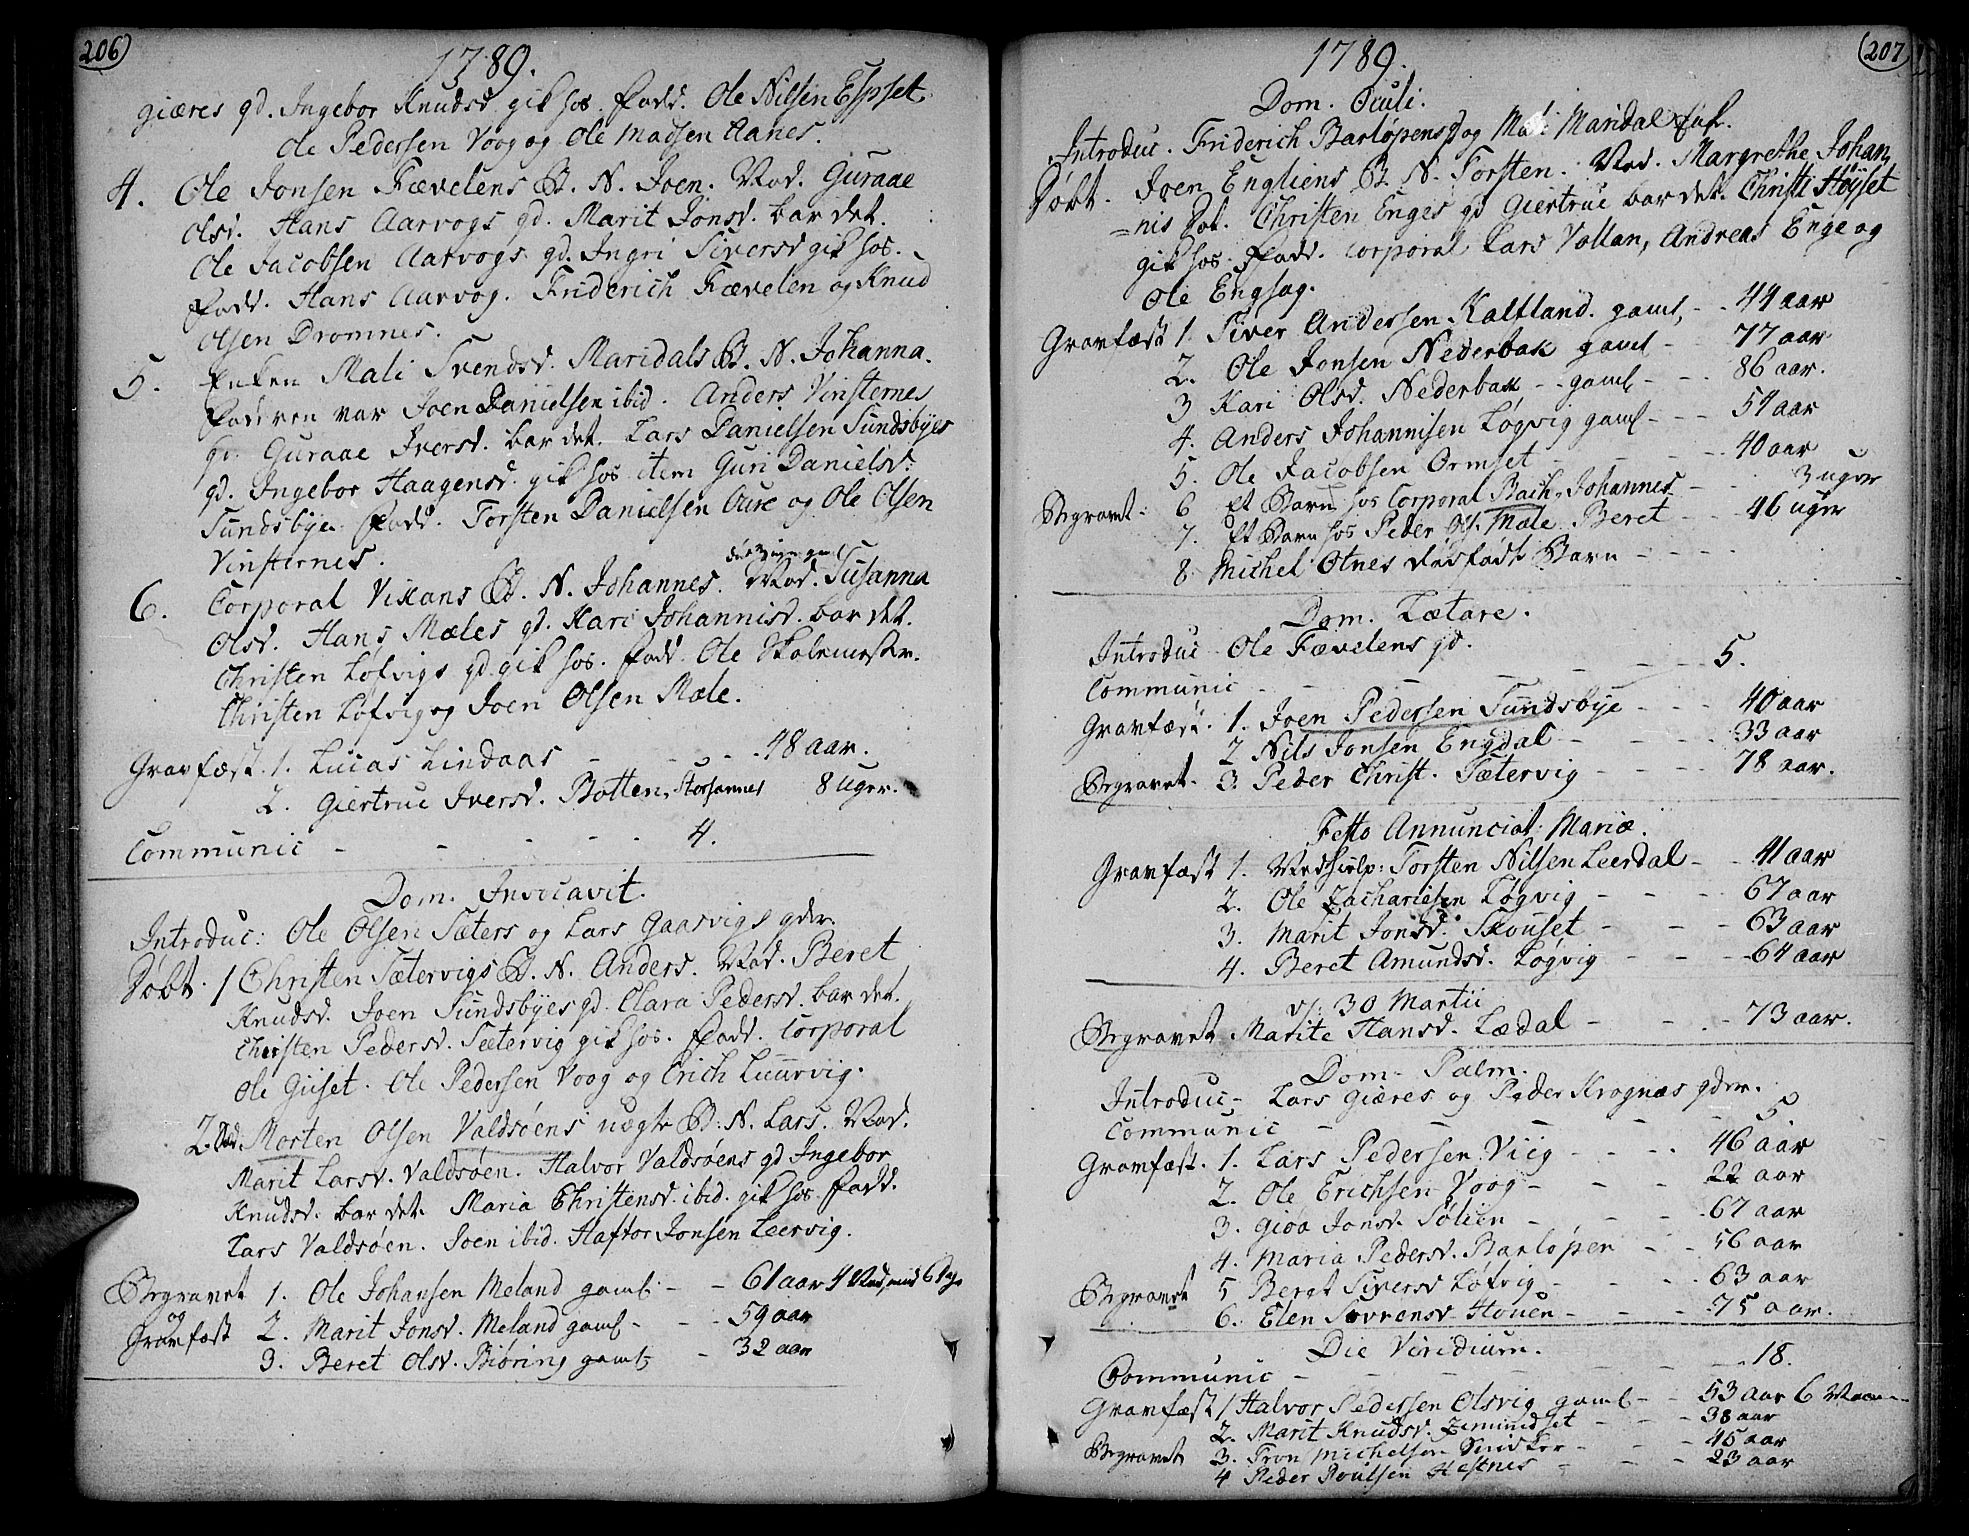 206
1789.
giæres qd. Ingebor Knudsd gik hos. Fadd. Ole Nilsen Espset,
Ole Pedersen Voog og Ole Madsen Aanes.
4. Ole Jonsen Fævelens B. N. Joen. Mod. Guraae
Olsd. Hans Aarvogs qd. Marit Jonsd. bar det.
Ole Jacobsen Aarvogs qd. Ingri Siversd gik hos.
Fadd. Hans Aarvog. Friderich Fævelen og Knud
Olsen Dromnes.
5. Enken Mali Svendsd. Maridals B. N. Johanna.
Faderen var Joen Danielsen ibid. Anders Vinsternes
qd. Guraae Iversd. bar det. Lars Danielsen Sundsbyes
qd. Ingebor Haagensd. gik hos item Guri Danielsd.
Sundsbye. Fadd. Torsten Danielsen Aure og Ole Olsen
Vinsternes.
6. Corporal Vikans B. N. Johannes. Mod. Susanna
Olsd. Hans Mæles qd. Kari Johannisd. bar det.
Christen Løfvigs qd gik hos. Fadd. Ole Skolemester.
Christen Løfvig og Joen Olsen Mæle.
Gravfæst. 1. Lucas Lindaas - - - 48 aar.
2. Giertrue Iversd. Botten, Storhannes 8 uger.
Communic - - - - 4.
Dom. Invocavit.
Introduc: Ole Olsen Sæters og Lars Gaasvigs qder.
Døbt. 1 Christen Sætervigs B. N. Anders. Mod. Beret
Knudsd. Joen Sundsbyes qd. Clara Pedersd. bar det.
Christen Pedersd. Sætervig gik hos. Fadd. Corporal
Ole Giiset. Ole Pedersen Voog og Erich Luurvig.
2. Morten Olsen Valdsøens uægte B. N. Lars. Mod.
Marit Larsd. Valdsøen. Halvor Valdsøens qd Ingebor
Knudsd. bar det. Maria Christensd. ibid. gik hos. Fadd.
Lars Valdsøen. Joen ibid. Haftor Jonsen Leervig.
Begravet 1. Ole Johansen Meland gaml - - 61 aar 4
og
Gravfæst 2. Marit Jonsd. Meland gaml - - 59 aar
3. Beret Olsd. Biøring gaml - 32 aar
207
1789.
Dom. Oculi.
Introduc. Friderich Barløpens qd og Mali Maridal
Døbt. Joen Engliens B. N. Torsten. Mod. Margrethe Johan
=nis Dot. Christen Enges qd Giertrue bar det. Christi Høyset
gik hos. Fadd. Corporal Lars Vollan, Andreas Enge og
Ole Enghag.
Gravfæst 1. Siver Andersen Kalfland. gaml, - - 44 aar
2. Ole Jonsen Nederbak gaml - 77 aar
3 Kari Olsd. Nederbak - - gaml - - - 86 aar.
4. Anders Johannisen Løgvig gaml - - - 54 aar
5. Ole Jacobsen Ormset - - - - 40 aar
Begravet: 6 Et Barn hos Corporal Bach, Johannes - - 3 uger
7. Et Barn hos Peder Mæle Beret - - 46 uger
8. Michel Otnes dødfødt Barn - - - -
Dom. Lætare.
Introduc Ole Fævelens qd.
Communic - - - - - - 5.
Gravfæst. 1. Joen Pedersen Sundsbye - - - 40 aar
2 Nils Jonsen Engdal - - - - 33 aar
Begravet. 3. Peder Christ. Sætervig - - - - 78 aar.
Festo Annunciat: Mariæ.
Gravfæst 1. Medhielp: Torsten Nilsen Leerdal - - 41 aar
2. Ole Zachariesen Løgvig - - - - 67 aar
3. Marit Jonsd. Skouset - - - 63 aar
4. Beret Amundsd. Løgvig - - - - 64 aar
d/: 30 Martii
Begravet Marite Hansd. Lædal - - - - 73 aar.
Dom. Palm.
Introduc - Lars Giæres og Peder Krognæs qder.
Communic - - - - - 5
Gravfæst. 1. Lars Pedersen Viig - - - - 46 aar
2. Ole Erichsen Voog - - - 22 aar
3. Giøa Jonsd. Søleen - - - - 67 aar
4. Maria Pedersd. Barløpen - - 56 aar
Begravet 5 Beret Siversd Løfvig - - - - 63 aar
6. Elen Sovrensd Houen - - - - 75 aar.
Die Viridium.
Communic - - - - - - 18.
Gravfæst 1 Halvor Pedersen Olsvig gaml - - 53 aar 6
2. Marit Knudsd. Zemundset - - - 38 aar
Begravet 3. Tron Michelsen - - - 45 aar
4 Peder Poulsen Hestnes - - - 23 aar